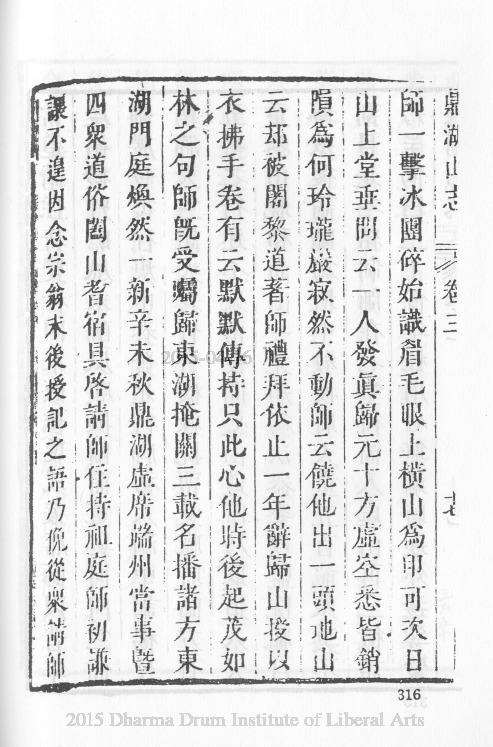 鼎湖山志 卷三 十七
師一擊冰團碎始識眉毛眼上橫山為印可次日
山上堂垂問云一人發眞歸元十方虛空悉皆銷
隕為何玲瓏巖寂然不動師云饒他出一頭地山
云却被闍黎道著師禮拜依止一年辭歸山授以
衣拂手卷有云默默傳持只此心他時後起茂如
林之句師旣受囑歸東湖掩關三載名播諸方東
湖門庭煥然一新辛未秋鼎湖虛席端州當事暨
四衆道俗闔山耆宿具啓請師住持祖庭師初謙
讓不遑因念宗翁末後授記之語乃俛從衆請師
316
2015 Dharma Drum Institute of Liberal Arts